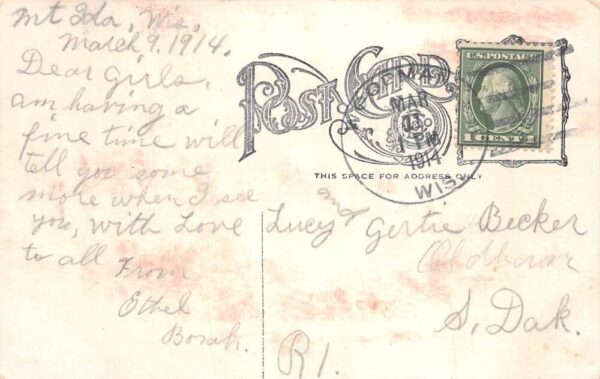 Mt Ida, Wis,
March 9. 1914.
Dear Girls,
am having a
fine time will
tell you some
more when I see
you, with Love
to all
From
Ethel
Borah.
POST CARD
MAR
1914
WIS.
U.S. POSTAGE
1 CENT 1
THIS SPACE FOR ADDRESS ONLY
Lucy and Gertie Becker
S. Dak.
R1.